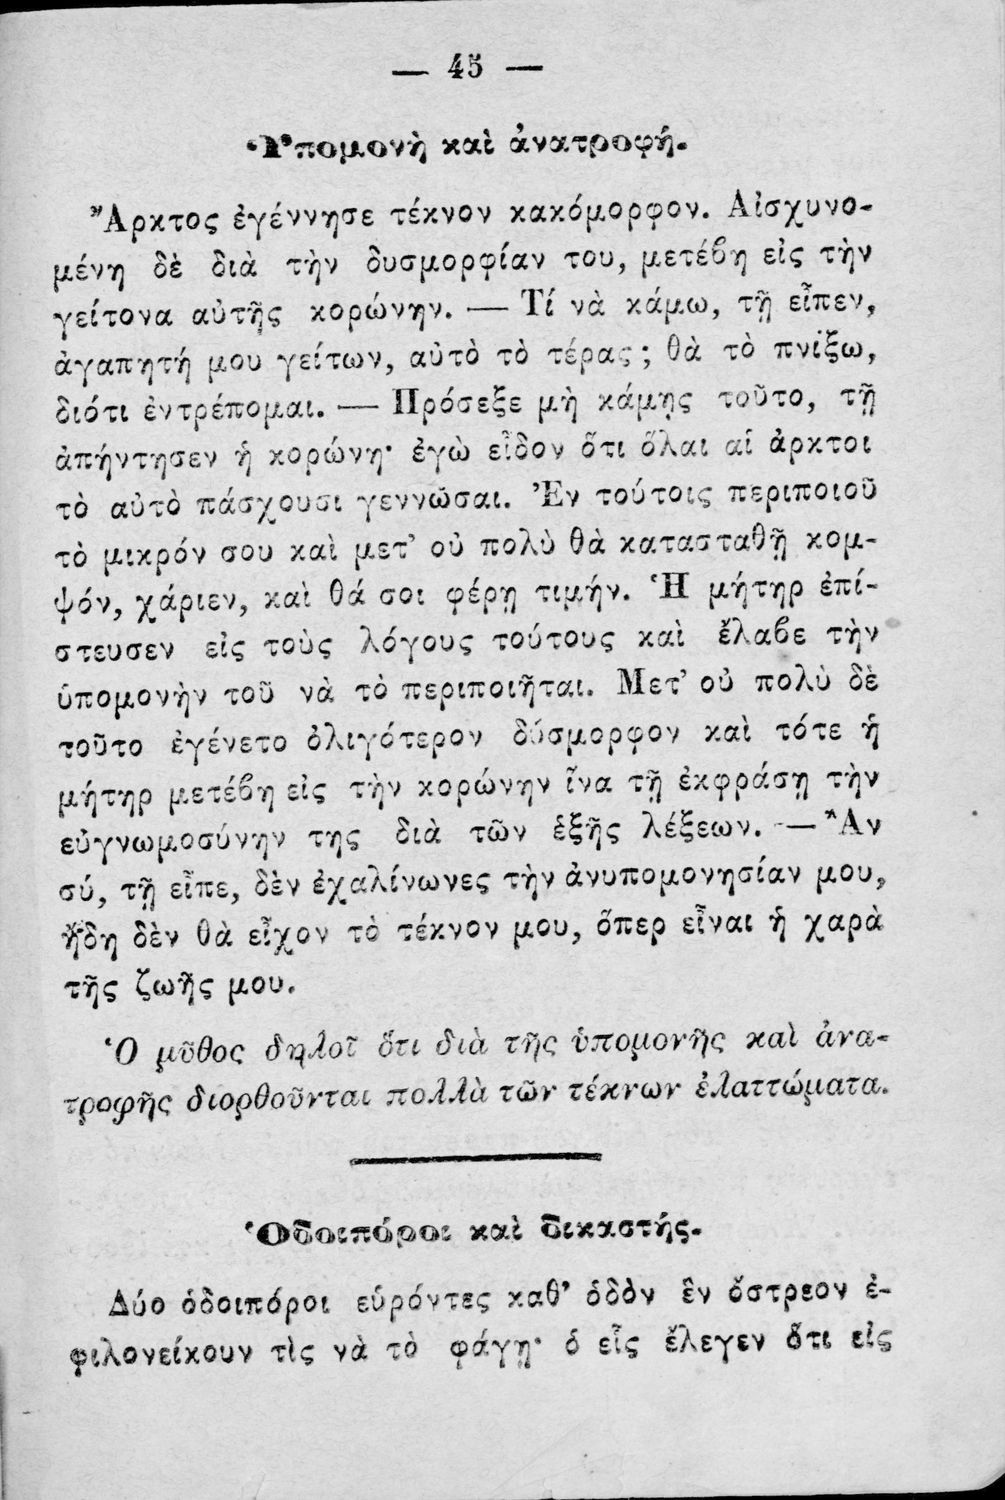 — 45 —
Ὑπομονὴ καὶ ἀνατροφή.
Ἄρκτος ἐγέννησε τέκνον κακόμορφον. Αἰσχυνο-
μένη δὲ διὰ τὴν δυσμορφίαν του, μετέβη εἰς τὴν
γείτονα αὐτῆς κορώνην. — Τί νὰ κάμω, τῇ εἶπεν,
ἀγαπητή μου γείτων, αὐτὸ τὸ τέρας; θὰ τὸ πνίξω,
διότι ἐντρέπομαι. — Πρόσεξε μὴ κάμῃς τοῦτο, τῇ
ἀπήντησεν ἡ κορώνη· ἐγὼ εἶδον ὅτι ὅλαι αἱ ἄρκτοι
τὸ αὐτὸ πάσχουσι γεννῶσαι. Ἐν τούτοις περιποιοῦ
τὸ μικρόν σου καὶ μετ’ οὐ πολὺ θὰ κατασταθῇ κομ-
ψόν, χάριεν, καὶ θά σοι φέρῃ τιμήν. Ἡ μήτηρ ἐπί-
στευσεν εἰς τοὺς λόγους τούτους καὶ ἔλαβε τὴν
ὑπομονὴν τοῦ νὰ τὸ περιποιῆται. Μετ’ οὐ πολὺ δὲ
τοῦτο ἐγένετο ὀλιγότερον δύσμορφον καὶ τότε ἡ
μήτηρ μετέβη εἰς τὴν κορώνην ἵνα τῇ ἐκφράσῃ τὴν
εὐγνωμοσύνην της διὰ τῶν ἑξῆς λέξεων. — Ἂν
σύ, τῇ εἶπε, δὲν ἐχαλίνωνες τὴν ἀνυπομονησίαν μου,
ἤδη δὲν θὰ εἶχον τὸ τέκνον μου, ὅπερ εἶναι ἡ χαρὰ
τῆς ζωῆς μου.
Ὁ μῦθος δηλοῖ ὅτι διὰ τῆς ὑπομονῆς καὶ ἀνα-
τροφῆς διορθοῦνται πολλὰ τῶν τέκνων ἐλαττώματα.
Ὁδοιπόροι καὶ δικαστής.
Δύο ὁδοιπόροι εὑρόντες καθ’ ὁδὸν ἓν ὄστρεον ἐ-
φιλονείκουν τὶς νὰ τὸ φάγῃ· ὁ εἷς ἔλεγεν ὅτι εἰς